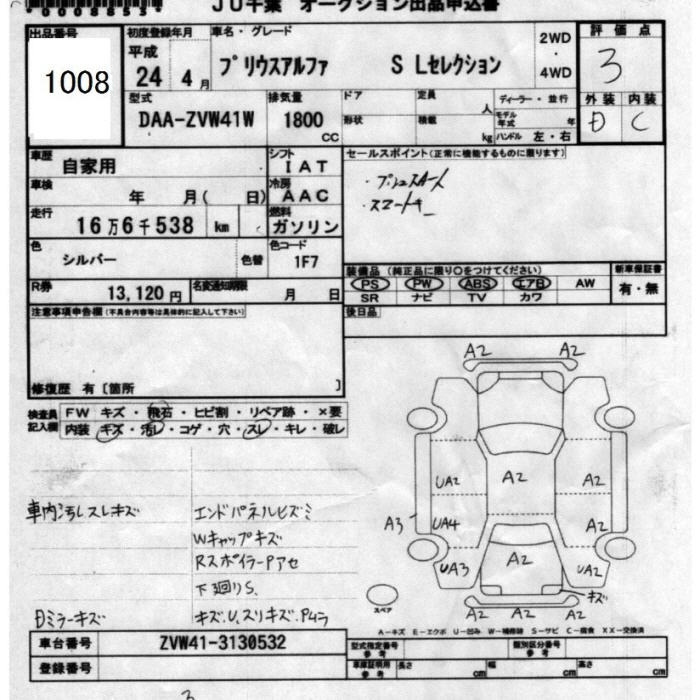 JU千葉 オークション出品申込書
00008853
出品番号
1008
初度登録年月
平成
24 4 月
車名・グレード
プリウスアルファ S Lセレクション
2WD
・
4WD
評価点
3
外装 内装
D C
型式
DAA-ZVW41W
排気量
1800
CC
ドア
形状
定員
人
積載
kg
ディーラー・並行
モデル年式 年
ハンドル 左・右
車歴
自家用
シフト
IAT
車検
年 月( 日)
冷房
AAC
走行
16万6千538 km
燃料
ガソリン
色
シルバー
色替
色コード
1F7
R券
13,120円
名変通知期限
月 日
セールスポイント(正常に機能するものに限ります)
・プッシュスタート
・スマートキー
装備品(純正品に限り○をつけてください)
新車保証書
PS PW ABS エアB AW
SR ナビ TV カワ
有・無
後日品
注意事項申告欄(不具合内容等は具体的に記入して下さい)
修復歴 有〔箇所 〕
検査員記入欄
FW キズ・飛石・ヒビ割・リペア跡・×要
内装 キズ・汚レ・コゲ・穴・スレ・キレ・破レ
車内汚レスレキズ
エンドパネルヒズミ
Wキャップキズ
RスポイラーPアセ
下廻りS、
Dミラーキズ
キズ、U、スリキズ、Pムラ
A2 A2
A2
UA2 A2
A3 UA4 A2
UA3 A2 UA2
キズ
A2 A2
スペア
A-キズ E-エクボ U-凹み W-補修跡 S-サビ C-腐食 XX-交換済
車台番号
ZVW41-3130532
登録番号
型式指定番号
参考
類別区分番号
参考
車庫証明用
参考
長さ cm
幅 cm
高さ cm
3